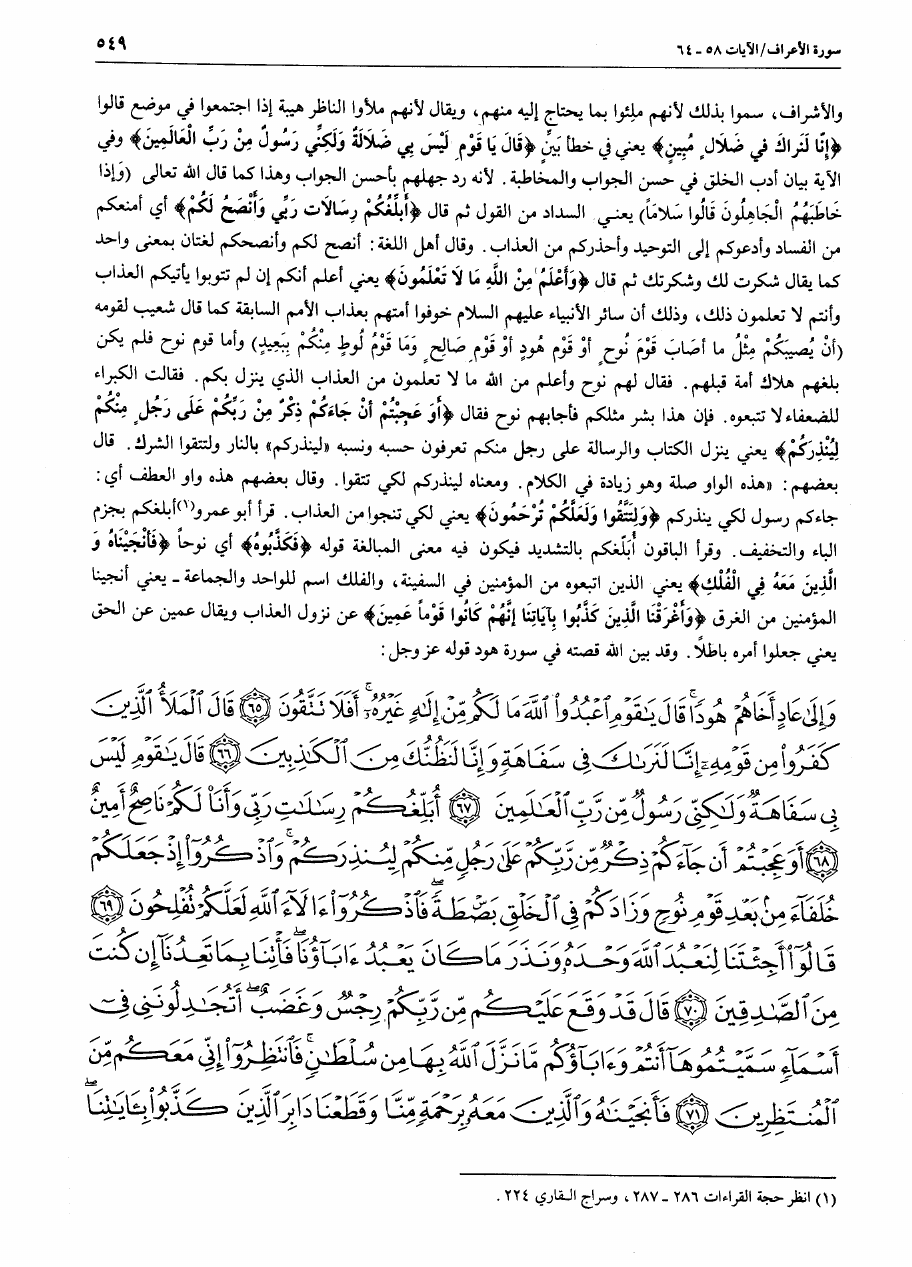 سورة الأعراف/الآيات ٥٨ - ٦٤
٥٤٩
والأشراف، سموا بذلك لأنهم ملئوا بما يحتاج إليه منهم، ويقال لأنهم ملأوا الناظر هيبة إذا اجتمعوا في موضع قالوا
﴿إِنَّا لَنَراكَ في ضَلَالٍ مُبِينٍ﴾ يعني في خطأ بَيِّن ﴿قَالَ يَا قَوْمِ لَيْسَ بِي ضَلَالَةٌ وَلَكِنِّي رَسُولٌ مِنْ رَبِّ الْعَالَمِينَ﴾ وفي
الآية بيان أدب الخلق في حسن الجواب والمخاطبة. لأنه رد جهلهم بأحسن الجواب وهذا كما قال الله تعالى (وَإِذا
خاطَبَهُمُ الْجَاهِلُونَ قَالُوا سَلاماً) يعني السداد من القول ثم قال ﴿أُبَلِّغُكُمْ رِسَالَات رَبِّي وَأَنْصَحُ لَكُمْ﴾ أي أمنعكم
من الفساد وأدعوكم إلى التوحيد وأحذركم من العذاب. وقال أهل اللغة: أنصح لكم وأنصحكم لغتان بمعنى واحد
كما يقال شكرت لك وشكرتك ثم قال ﴿وَأَعْلَمُ مِنْ اللَّهِ مَا لَا تَعْلَمُونَ﴾ يعني أعلم أنكم إن لم تتوبوا يأتيكم العذاب
وأنتم لا تعلمون ذلك، وذلك أن سائر الأنبياء عليهم السلام خوفوا أمتهم بعذاب الأمم السابقة كما قال شعيب لقومه
(أنْ يُصِيبَكُمْ مِثْلُ ما أصَابَ قَوْمَ نُوحٍ أوْ قَوْمَ هُودٍ أوْ قَوْمَ صَالِحٍ وَمَا قَوْمُ لُوطٍ مِنْكُمْ بِبَعِيدٍ) وأما قوم نوح فلم يكن
بلغهم هلاك أمة قبلهم. فقال لهم نوح وأعلم من الله ما لا تعلمون من العذاب الذي ينزل بكم. فقالت الكبراء
للضعفاء لا تتبعوه. فإن هذا بشر مثلكم فأجابهم نوح فقال ﴿أَوَ عَجِبْتُمْ أنْ جَاءَكُمْ ذِكْرٌ مِنْ رَبِّكُمْ عَلَى رَجُلٍ مِنْكُمْ
لِيُنْذِرَكُمْ﴾ يعني ينزل الكتاب والرسالة على رجل منكم تعرفون حسبه ونسبه «لينذركم» بالنار ولتتقوا الشرك. قال
بعضهم: «هذه الواو صلة وهو زيادة في الكلام. ومعناه لينذركم لكي تتقوا. وقال بعضهم هذه واو العطف أي:
جاءكم رسول لكي ينذركم ﴿وَلِتَتَّقُوا وَلَعَلَّكُمْ تُرْحَمُونَ﴾ يعني لكي تنجوا من العذاب. قرأ أبو عمرو(١) أبلغكم بجزم
الباء والتخفيف. وقرأ الباقون أُبَلِّغكم بالتشديد فيكون فيه معنى المبالغة قوله ﴿فَكَذَّبُوهُ﴾ أي نوحاً ﴿فَأَنْجَيْنَاهُ وَ
الَّذِينَ مَعَهُ فِي الْفُلْكِ﴾ يعني الذين اتبعوه من المؤمنين في السفينة، والفلك اسم للواحد والجماعة - يعني أنجينا
المؤمنين من الغرق ﴿وَأَغْرَقْنَا الَّذِينَ كَذَّبُوا بِآيَاتِنَا إِنَّهُمْ كَانُوا قَوْماً عَمِينَ﴾ عن نزول العذاب ويقال عمين عن الحق
يعني جعلوا أمره باطلًا. وقد بين الله قصته في سورة هود قوله عز وجل:
وَإِلَىٰ عَادٍ أَخَاهُمْ هُودًا ۗ قَالَ يَٰقَوْمِ ٱعْبُدُوا۟ ٱللَّهَ مَا لَكُم مِّنْ إِلَٰهٍ غَيْرُهُۥٓ ۚ أَفَلَا تَتَّقُونَ ﴿٦٥﴾ قَالَ ٱلْمَلَأُ ٱلَّذِينَ
كَفَرُوا۟ مِن قَوْمِهِۦٓ إِنَّا لَنَرَىٰكَ فِى سَفَاهَةٍ وَإِنَّا لَنَظُنُّكَ مِنَ ٱلْكَٰذِبِينَ ﴿٦٦﴾ قَالَ يَٰقَوْمِ لَيْسَ
بِى سَفَاهَةٌ وَلَٰكِنِّى رَسُولٌ مِّن رَّبِّ ٱلْعَٰلَمِينَ ﴿٦٧﴾ أُبَلِّغُكُمْ رِسَٰلَٰتِ رَبِّى وَأَنَا۠ لَكُمْ نَاصِحٌ أَمِينٌ
﴿٦٨﴾ أَوَعَجِبْتُمْ أَن جَآءَكُمْ ذِكْرٌ مِّن رَّبِّكُمْ عَلَىٰ رَجُلٍ مِّنكُمْ لِيُنذِرَكُمْ ۚ وَٱذْكُرُوٓا۟ إِذْ جَعَلَكُمْ
خُلَفَآءَ مِنۢ بَعْدِ قَوْمِ نُوحٍ وَزَادَكُمْ فِى ٱلْخَلْقِ بَصْۜطَةً ۖ فَٱذْكُرُوٓا۟ ءَالَآءَ ٱللَّهِ لَعَلَّكُمْ تُفْلِحُونَ ﴿٦٩﴾
قَالُوٓا۟ أَجِئْتَنَا لِنَعْبُدَ ٱللَّهَ وَحْدَهُۥ وَنَذَرَ مَا كَانَ يَعْبُدُ ءَابَآؤُنَا ۖ فَأْتِنَا بِمَا تَعِدُنَآ إِن كُنتَ
مِنَ ٱلصَّٰدِقِينَ ﴿٧٠﴾ قَالَ قَدْ وَقَعَ عَلَيْكُم مِّن رَّبِّكُمْ رِجْسٌ وَغَضَبٌ ۖ أَتُجَٰدِلُونَنِى فِىٓ
أَسْمَآءٍ سَمَّيْتُمُوهَآ أَنتُمْ وَءَابَآؤُكُم مَّا نَزَّلَ ٱللَّهُ بِهَا مِن سُلْطَٰنٍ ۚ فَٱنتَظِرُوٓا۟ إِنِّى مَعَكُم مِّنَ
ٱلْمُنتَظِرِينَ ﴿٧١﴾ فَأَنجَيْنَٰهُ وَٱلَّذِينَ مَعَهُۥ بِرَحْمَةٍ مِّنَّا وَقَطَعْنَا دَابِرَ ٱلَّذِينَ كَذَّبُوا۟ بِـَٔايَٰتِنَا ۖ
(١) انظر حجة القراءات ٢٨٦ - ٢٨٧، وسراج القاري ٢٢٤.